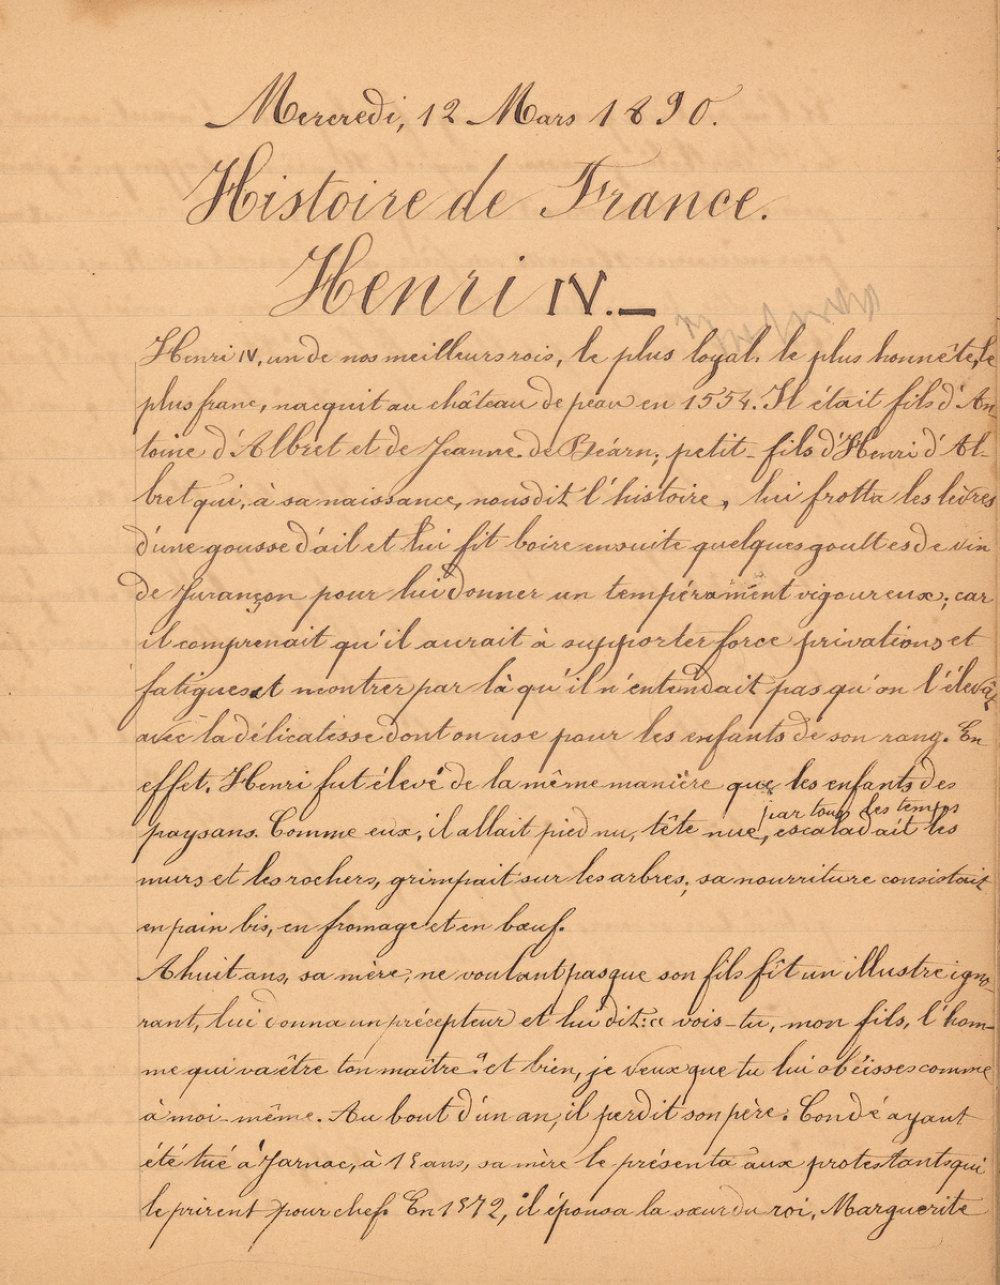 Mercredi, 12 Mars 1890.
Histoire de France.
Henri IV. —
Henri IV, un de nos meilleurs rois, le plus loyal, le plus honnête, le
plus franc, nacquit au château de peau en 1554. Il était fils d'An-
toine d'Albret et de Jeanne de Béarn; petit-fils d'Henri d'Al-
bret qui, à sa naissance, nous dit l'histoire, lui frotta les lèvres
d'une gousse d'ail et lui fit boire ensuite quelques gouttes de vin
de Jurançon pour lui donner un tempérament vigoureux; car
il comprenait qu'il aurait à supporter force privations et
fatigues et montrer par là qu'il n'entendait pas qu'on l'élevât
avec la délicatesse dont on use pour les enfants de son rang. En
effet, Henri fut élevé de la même manière que les enfants des
par tous les temps
paysans. Comme eux, il allait pied nu, tête nue, escaladait les
murs et les rochers, grimpait sur les arbres; sa nourriture consistait
en pain bis, en fromage et en bœuf.
A huit ans, sa mère, ne voulant pas que son fils fît un illustre igno-
rant, lui donna un précepteur et lui dit: « vois-tu, mon fils, l'hom-
me qui va être ton maître? et bien, je veux que tu lui obéisses comme
à moi-même. Au bout d'un an, il perdit son père. Condé ayant
été tué à Jarnac, à 15 ans, sa mère le présenta aux protestants qui
le prirent pour chef. En 1572, il épousa la sœur du roi, Marguerite